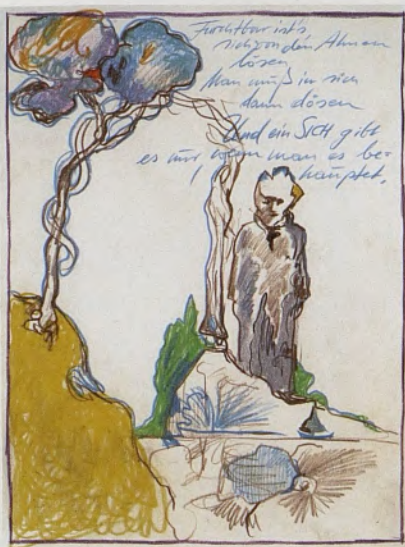 Furchtbar ist's
sich von den Ahnen
lösen
Man muß in sich
dann dösen
Und ein SICH gibt
es nur wenn man es be-
hauptet.